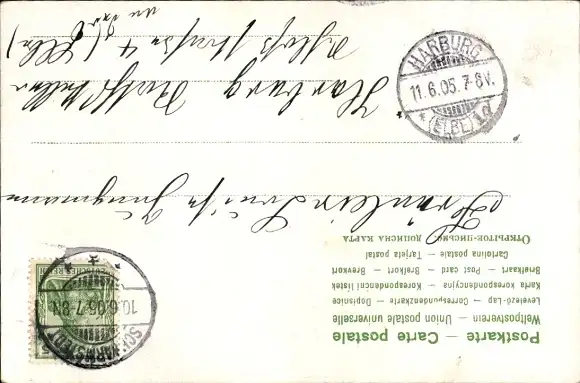 Postkarte — Carte postale
Weltpostverein — Union postale universelle
Levelező-Lap — Correspondenzkarte — Dopisnice
Karta korespondencyjna — Korespondenční lístek
Briefkaart — Post card — Brefkort — Brevkort
Cartolina postale — Tarjeta postal
ОТКРЫТОЕ-ПИСЬМО. ДОПИСНА КАРТА
DEUTSCHES REICH
5
10.6.05.7-8
Fräulein Luise Jungmann
Harburg
(Elbe)
HARBURG
11.6.05.7-8V.
* (ELBE) 1d